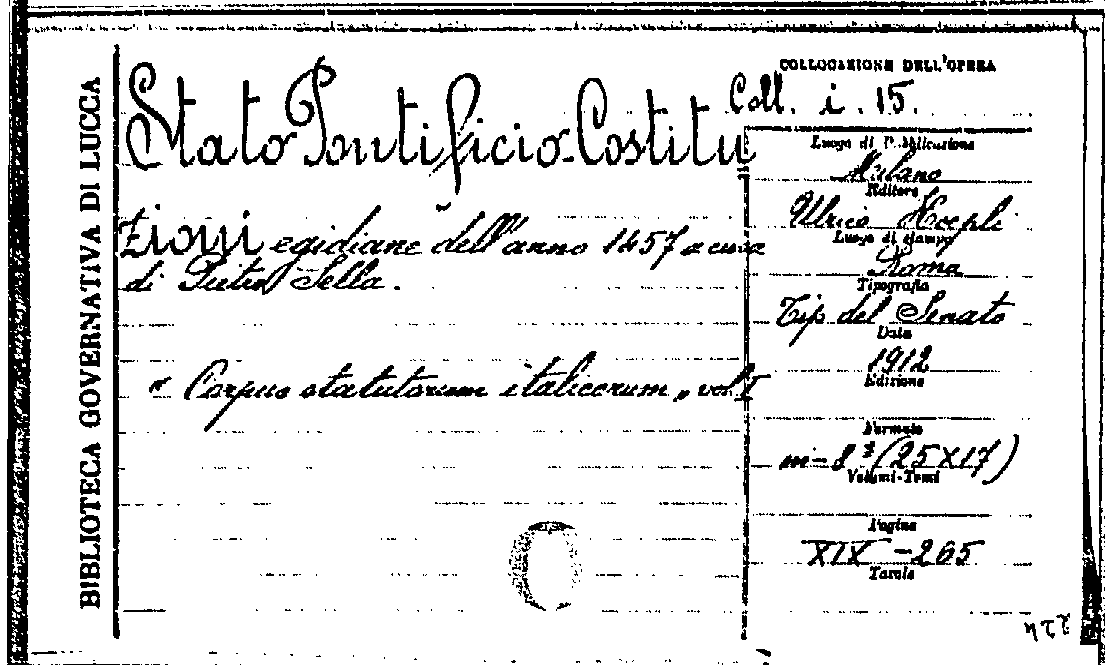 BIBLIOTECA GOVERNATIVA DI LUCCA
Stato Pontificio-Costitu
zioni egidiane dell'anno 1457 a cura
di Pietro Sella.
"Corpus statutorum italicorum" vol. I
COLLOCAZIONE DELL'OPERA
Coll. i. 15.
Luogo di Pubblicazione
Milano
Editore
Ulrico Hoepli
Luogo di stampa
Roma
Tipografia
Tip del Senato
Data
1912
Edizione
Formato
in-8° (25X17)
Volumi-Tomi
Pagine
XIX-265
Tavole